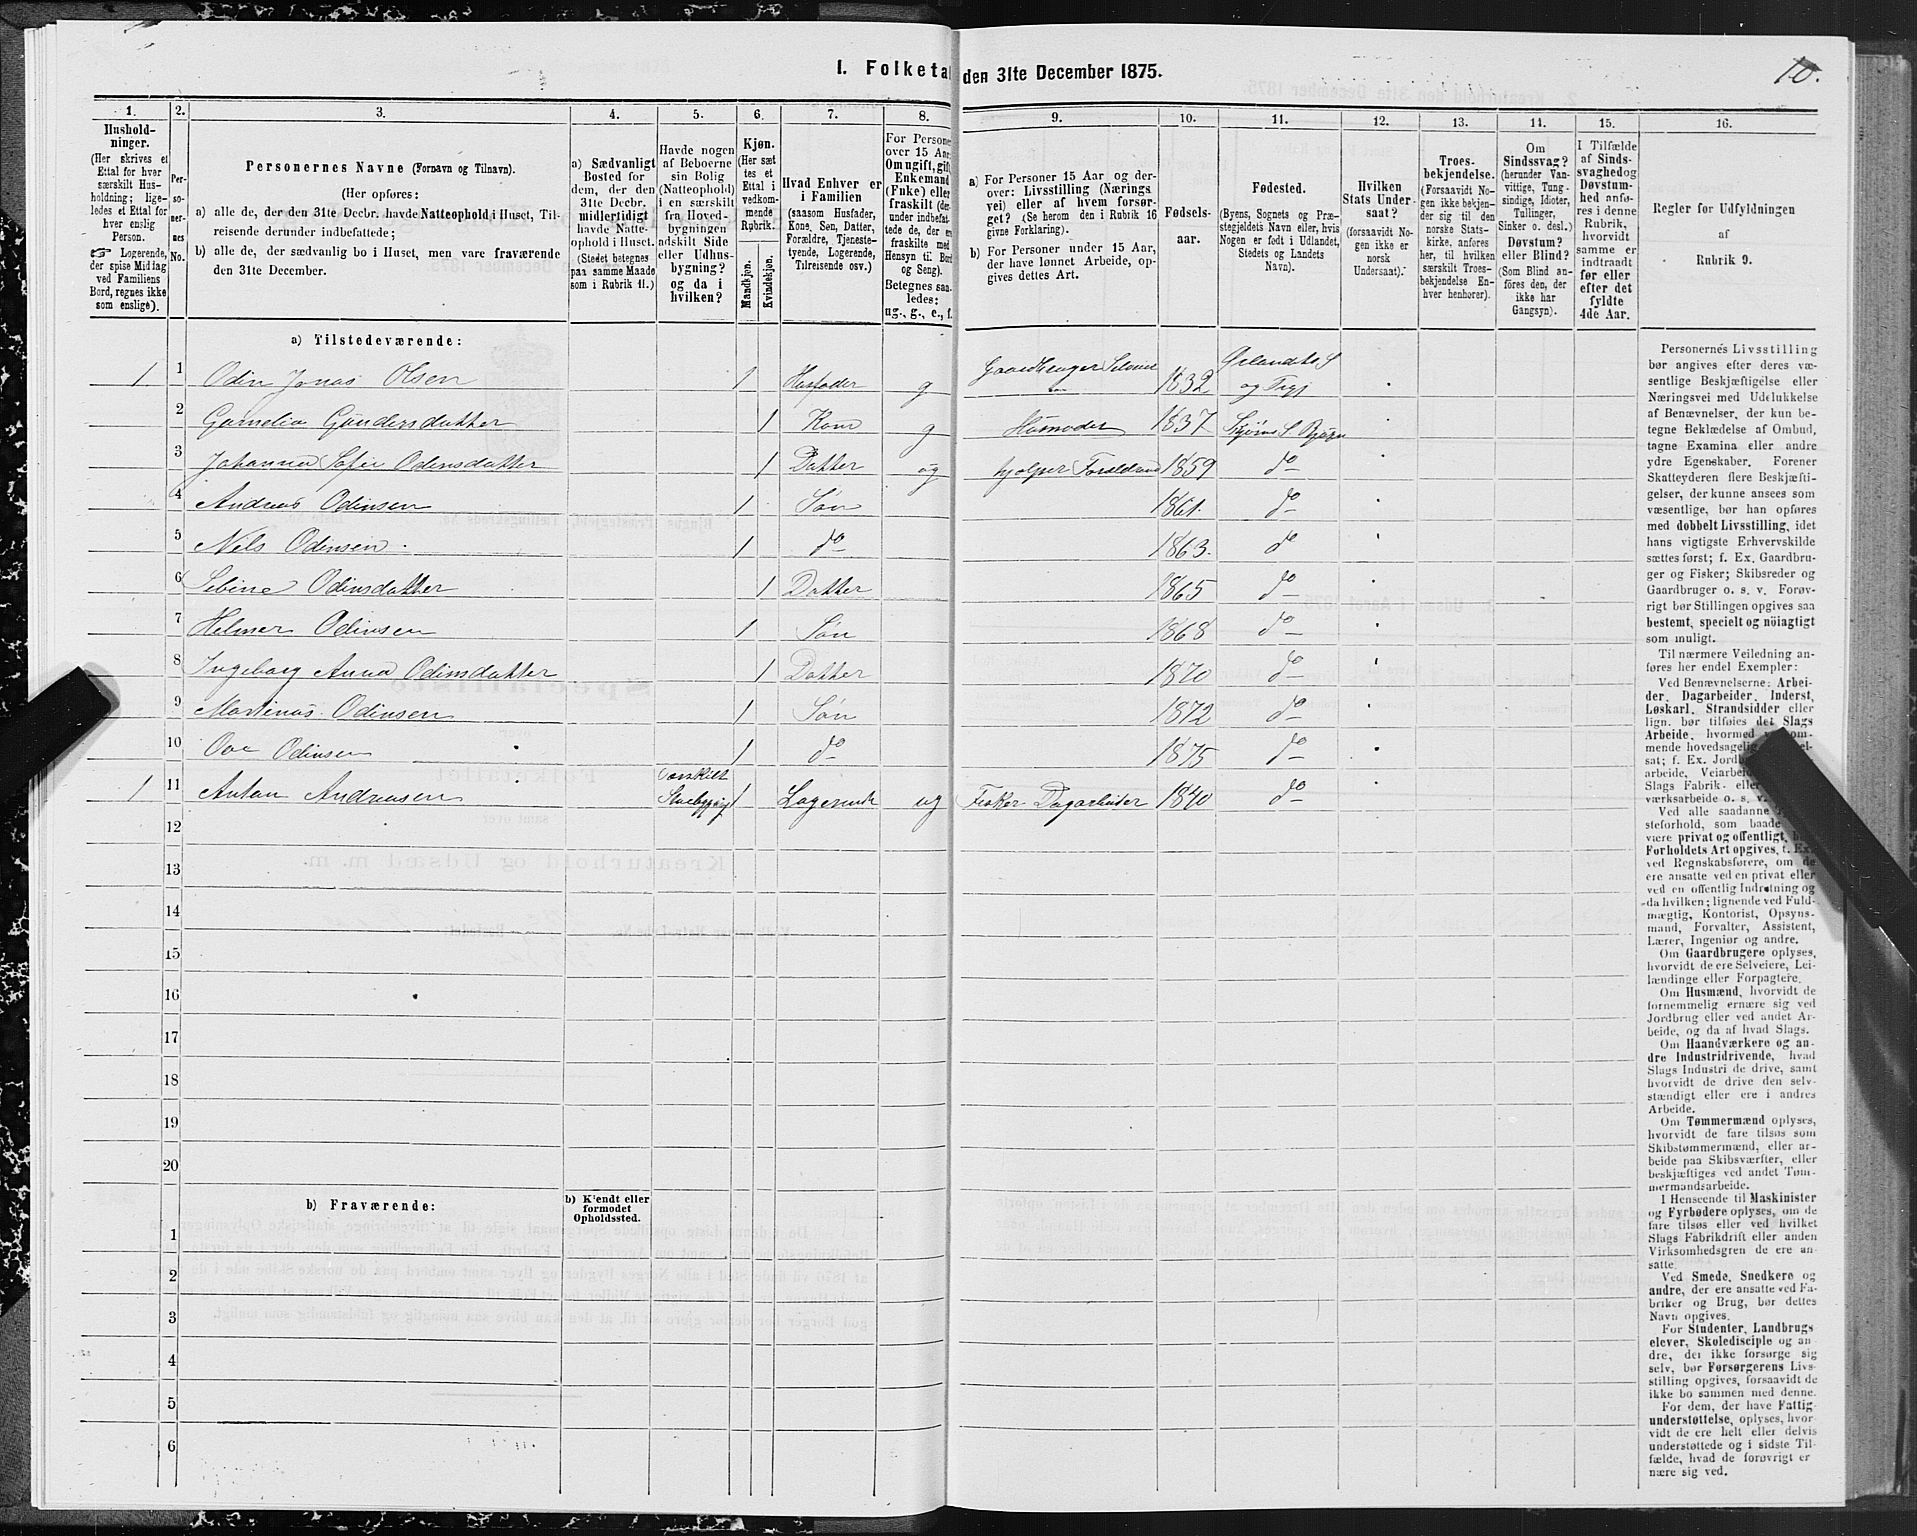 I. Folketal den 31te December 1875.
10.
1.
2.
3.
4.
5.
6.
7.
8.
9.
10.
11.
12.
13.
14.
15.
16.
Hushold-
ninger.
(Her skrives et
Ettal for hver
særskilt Hus-
holdning; lige-
ledes et Ettal for
hver enslig
Person.
☞ Logerende,
der spise Middag
ved Familiens
Bord, regnes ikke
som enslige).
Per-
soner-
nes
No.
Personernes Navne (Fornavn og Tilnavn).
(Her opføres:
a) alle de, der den 31te Decbr. havde Natteophold i Huset, Til-
reisende derunder indbefattede;
b) alle de, der sædvanlig bo i Huset, men vare fraværende
den 31te December.
a) Sædvanligt
Bosted for
dem, der den
31te Decbr.
midlertidigt
havde Natte-
ophold i Huset.
(Stedet betegnes
paa samme Maade
som i Rubrik 11.)
Havde nogen
af Beboerne
sin Bolig
(Natteophold)
i en særskilt
fra Hoved-
bygningen
adskilt Side
eller Udhus-
bygning?
og da i
hvilken?
Kjøn.
(Her sæt
tes et
Ettal i
vedkom-
mende
Rubrik.
Mandkjøn.
Kvindekjøn.
Hvad Enhver er
i Familien
(saasom Husfader,
Kone, Søn, Datter,
Forældre, Tjeneste-
tyende, Logerende,
Tilreisende osv.)
For Personer
over 15 Aar:
Om ugift, gift,
Enkemand
(Enke) eller
fraskilt (der-
under indbefat-
tede de, der ere
fraskilte med
Hensyn til Bord
og Seng).
Betegnes saa-
ledes:
ug., g., e., f.
a) For Personer 15 Aar og der-
over: Livsstilling (Nærings
vei) eller af hvem forsør-
get? (Se herom den i Rubrik 16
givne Forklaring).
b) For Personer under 15 Aar,
der have lønnet Arbeide, op-
gives dettes Art.
Fødsels-
aar.
Fødested.
(Byens, Sognets og Præ-
stegjeldets Navn eller, hvis
Nogen er født i Udlandet,
Stedets og Landets
Navn).
Hvilken
Stats Under-
saat?
(forsaavidt No-
gen ikke er
norsk
Undersaat).
Troes-
bekjendelse.
(Forsaavidt No-
gen ikke bekjen-
der sig til den
norske Stats-
kirke, anføres
her, til hvilken
særskilt Troes-
bekjendelse En-
hver henhører).
Om
Sindssvag?
(herunder Van-
vittige, Tung-
sindige, Idioter,
Tullinger,
Sinker o. desl.)
Døvstum?
eller Blind?
(Som Blind an-
føres den, der
ikke har
Gangsyn).
I Tilfælde
af Sinds-
svaghed og
Døvstum-
hed anfø-
res i denne
Rubrik,
hvorvidt
samme er
indtraadt
før eller
efter det
fyldte
4de Aar.
Regler for Udfyldningen
af
Rubrik 9.
a) Tilstedeværende:
1 1 Odin Jonas Olsen 1 Husfader g Gaardbruger Selveier 1832 Ørlandets S og
2 Gunnelia Gundersdatter 1 Kone g Husmoder 1837 Stjørns S
3 Johanna Sofie Odinsdatter 1 Datter ug hjelper Forældrene 1859 do
4 Andreas Odinsen 1 Søn 1861. do
5 Nils Odinsen 1 do 1863. do
6 Sebine Odinsdatter 1 Datter 1865 do
7 Helmer Odinsen 1 Søn 1868 do
8 Ingeborg Anna Odinsdatter 1 Datter 1870 do
9 Martinus Odinsen 1 Søn 1872 do
10 Ove Odinsen 1 do 1875 do
1 11 Anton Andreasen 1 Logerende ug Fisker Dagarbeider 1840 do
12
13
14
15
16
17
18
19
20
b) Fraværende:
b) Kjendt eller
formodet
Opholdssted.
1
2
3
4
5
6
Personernes Livsstilling
bør angives efter deres væ-
sentlige Beskjæftigelse eller
Næringsvei med Udelukkelse
af Benævnelser, der kun be-
tegne Beklædelse af Ombud,
tagne Examina eller andre
ydre Egenskaber. Forener
Skatteyderen flere Beskjæfti-
gelser, der kunne ansees som
væsentlige, bør han opføres
med dobbelt Livsstilling, idet
hans vigtigste Erhvervskilde
sættes først; f. Ex. Gaardbru-
ger og Fisker; Skibsreder og
Gaardbruger o. s. v. Forøv-
rigt bør Stillingen opgives saa
bestemt, specielt og nöiagtigt
som muligt.
Til nærmere Veiledning an-
føres her endel Exempler:
Ved Benævnelserne: Arbei-
der, Dagarbeider, Inderst,
Løskarl, Strandsidder eller
lign. bør tilføies det Slags
Arbeide, hvormed
mende hovedsagelig
sat; f. Ex.
arbeide,
Slags Fabrik- eller
værksarbeide o. s. v.
Ved alle saadanne
steforhold, som baade
være privat og offentligt,
Forholdets Art opgives, f. Ex.
ved Regnskabsførere, om de
ere ansatte ved en privat eller
ved en offentlig Indretning og
da hvilken; lignende ved Fuld-
mægtig, Kontorist, Opsyns-
mand, Forvalter, Assistent,
Lærer, Ingeniør og andre.
Om Gaardbrugere oplyses,
hvorvidt de ere Selveiere, Lei-
lændinge eller Forpagtere.
Om Husmænd, hvorvidt de
fornemmelig ernære sig ved
Jordbrug eller ved andet Ar-
beide, og da af hvad Slags.
Om Haandværkere og an-
dre Industridrivende, hvad
Slags Industri de drive, samt
hvorvidt de drive den selv-
stændigt eller ere i andres
Arbeide.
Om Tømmermænd oplyses,
hvorvidt de fare tilsøs som
Skibstømmermænd, eller ar-
beide paa Skibsværfter, eller
beskjæftiges ved andet Tøm-
mermandsarbeide.
I Henseende til Maskinister
og Fyrbødere oplyses, om de
fare tilsøs eller ved hvilket
Slags Fabrikdrift eller anden
Virksomhedsgren de ere an-
satte.
Ved Smede, Snedkere og
andre, der ere ansatte ved Fa-
briker og Brug, bør dettes
Navn opgives.
For Studenter, Landbrugs-
elever, Skoledisciple og an-
dre, der ikke forsørge sig
selv, bør Forsørgerens Livs-
stilling opgives, forsaavidt de
ikke bo sammen med denne.
For dem, der have Fattig-
understøttelse, oplyses, hvor-
vidt de ere helt eller delvis
understøttede og i sidste Til-
fælde, hvad de forøvrigt er-
nære sig ved.